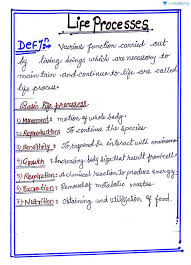 Life Processes
Defn:- Various function carried out
by living beings which are necessary to
maintain and continue to life are called
life process.
Basic life processes
1) Movement: motion of whole body.
2) Reproduction: To continue the species.
3) Sensitivity: To respond be interact with
4) Growth: Increasing body size that result from
5) Respiration: chemical reaction to produce energy
6) Excretion: Removal of metabolic wastes.
7) Nutrition: Obtaining and utilization of food.